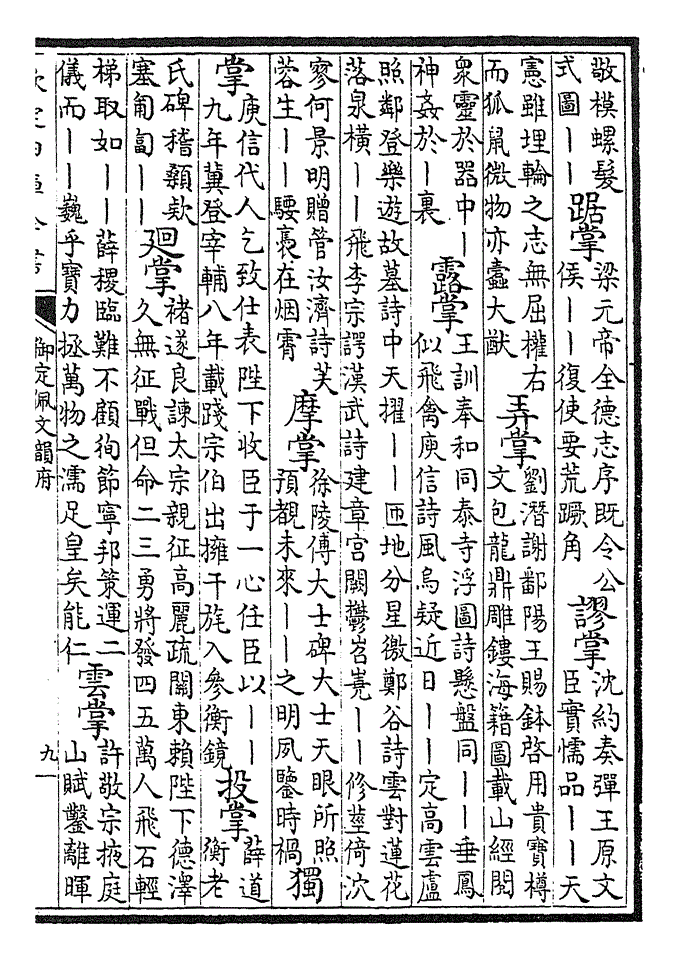 敬模螺髮
式圖丨丨
踞掌
梁元帝全德志序既令公
侯丨丨復使要荒蹶角
謬掌
沈約奏彈王原文
臣實懦品丨丨天
憲雖埋輪之志無屈權右
而狐鼠微物亦蠹大猷
弄掌
劉潛謝鄱陽王賜鉢啓用貴寶樽
文包龍鼎雕鏤海籍圖載山經閱
衆靈於器中丨
神姦於丨裏
露掌
王訓奉和同泰寺浮圖詩懸盤同丨丨垂鳳
似飛禽庾信詩風烏疑近日丨丨定高雲盧
照鄰登樂遊故墓詩中天擢丨丨匝地分星徼鄭谷詩雲對蓮花
落泉橫丨丨飛李宗諤漢武詩建章宮闕鬱岧嶤丨丨修莖倚泬
寥何景明贈管汝濟詩芙
蓉生丨丨騕褭在烟霄
摩掌
徐陵傅大士碑大士天眼所照
預覩未來丨丨之明夙鑒時禍
獨
掌
庾信代人乞致仕表陛下收臣于一心任臣以丨丨
九年冀登宰輔八年載踐宗伯出擁干旄入參衡鏡
投掌
薛道
衡老
氏碑稽顙款
塞匍匐丨丨
廻掌
褚遂良諫太宗親征高麗疏關東賴陛下德澤
久無征戰但命二三勇將發四五萬人飛石輕
梯取如丨丨薛稷臨難不顧徇節寧邦策運二
儀而丨丨巍乎寶力拯萬物之濡足皇矣能仁
雲掌
許敬宗掖庭
山賦鑿離暉
欽定四庫全書
御定佩文韻府
九